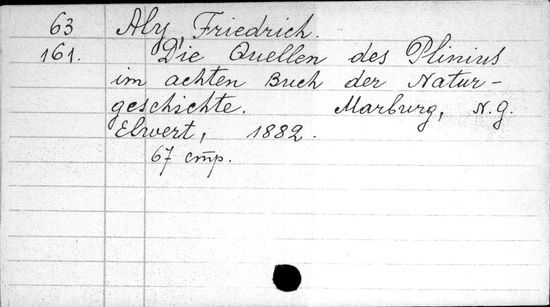 63 Aly, Friedrich.
161. Die Quellen des Plinius
im achten Buch der Natur-
geschichte. Marburg, N.G.
Elwert, 1882.
67 стр.